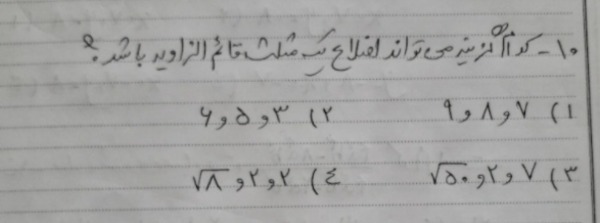 ۱۰- کدام گزینه می تواند اضلاع یک مثلث قائم الزاویه باشد؟
۱) ۷ و ۸ و ۹ ۲) ۳ و ۵ و ۶
۳) ۷ و ۲ و √۵۰ ۴) ۲ و ۲ و √۸